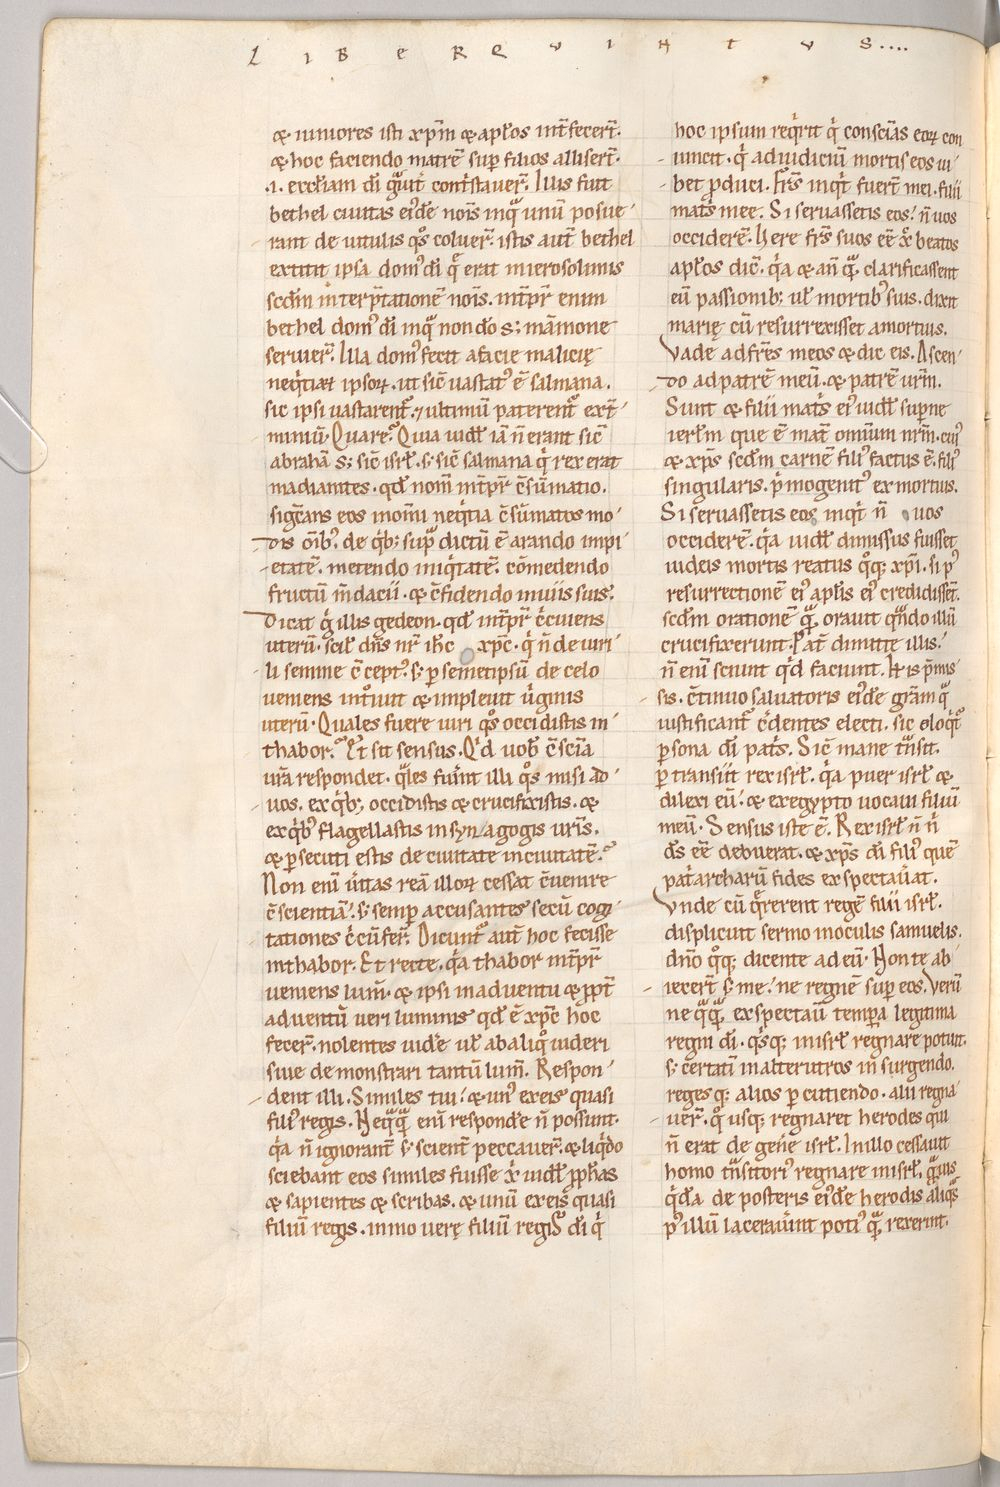 L I B E R Q V I N T V S....
& iuniores isti xp̄m & apłos int̄fecer̄t.
& hoc faciendo matrē sup filios alliser̄t.
.i. ecclīam dī gͣuit̄ cont̄staver̄. Illis fuit
bethel ciuitas ei'dē nōis inqͣ unū posue
rant de uitulis q̊s coluer̄. istis aut̄ bethel
extitit ipsa dom' dī q̄ erat in ierosolimis
scd̄m int̄erp̄tationē nōis. int̄pr̄ enim
bethel dom' dī inqͣ non dō s; māmone
seruier̄. Illa dom' fecit a facie malicię
neq̇tiaꝝ ipsoꝝ. ut sic̄ uastat' ē salmana.
sic ipsi uastarent᷑. ⁊ ultimū paterent᷑ ext̄
miniū. Quare? Quia uidł iā n̄ erant sic̄
abrahā s; sic̄ isrł. s; sic̄ salmana q̇ rex erat
madianites. qd̄ nom̄ int̄pr̄ c̄sūmatio.
sig̃cans eos in om̄i neq̇tia c̄sūmatos mo
dis ōib' de q̇b; supͣ dictū ē arando impi
etatē. metendo iniq̇tatē. cōmedendo
fructū m̄dacii. & c̄fidendo in uiis suis.
Dicat g̊ illis gedeon. qd̄ int̄pr̄ c̄cuiens
uterū. scił dn̄s nr̄ ih̄c xp̄c. q̇ n̄ de uiri
li semine c̄cept'. s; p semetipsū de celo
ueniens int̊iuit & impleuit ū̇ginis
uterū. Quales fuere uiri q̊s occidistis in
thabor? Et sit sensus. Q̇d uob̄ c̄scīa
ur̄a respondet. qͣles fuīnt illi q̊s misi ad
uos. ex q̇b; occidistis & crucifixistis. &
ex q̇b' flagellastis in synagogis ur̄is.
& psecuti estis de ciuitate in ciuitatē?
Non enī ūitas reā illoꝝ cessat c̄uenire
c̄scientiā. s; semp accusantes secū cogi
tationes c̄cūfer̄. Dicunt᷑ aut̄ hoc fecisse
in thabor. Et recte. q̇a thabor int̄pr̄
ueniens lum̄. & ipsi in aduentu & ppt̄
aduentū ueri luminis qd̄ ē xp̄c hoc
fecer̄. nolentes uid'e uł ab aliq̊ uideri
siue demonstrari tantū lum̄. Respon
dent illi. Similes tui. & un' ex eis quasi
fili' regis. Neqͣqͣ enī respond'e n̄ possunt.
q̇a n̄ ignorant̄ s; scient̄ peccauer̄. & liq̇do
sciebant eos similes fuisse x̄i uidł pph̄as
& sapientes & scribas. & unū ex eis quasi
filiū regis. immo uerę filiū regis dī q̇
hoc ipsum req̇rit q̇ consciās eoꝝ con
iuncit. q̇ ad iuidiciū mortis eos iu
bet produci. Fr̄s inq̇t fuer̄t mei. filii
mat̄s mee. Si seruassetis eos. n̄ uos
occiderē. here fr̄s suos eē x̄i beatos
apłos dic̄. q̇a & an̄ qͣ clarificassent
eū passionib; uł mortib' suis. dixit
marię cū resurrexisset a mortuis.
Vade ad fr̄es meos & dic eis. Ascen
do ad patrē meū. & patrē ur̄m.
Sunt & filii mat̄s ei' uidł supne
ierłm que ē mat̄ omnium nr̄m. cui'
& xp̄s scd̄m carnē fili' factus ē. fili'
singularis. p̄mogenit' ex mortuis.
Si seruassetis eos inq̇t n̄ uos
occiderē. q̇a uidł dimissus fuisset
iudeis mortis reatus q̊q; xp̄i. si p'
resurrectionē ei' apłis ei' credidisset̄.
scd̄m orationē qͣ orauit qͣndo illū
crucifixerunt. Pat̄ dimitte illis.
n̄ enī sciunt q̇d faciunt. His p̄mis
sis. c̄tinuo saluatoris ei'dē gr̄am qͣ
iustificant᷑ c̄dentes electi. sic eloq̇t᷑
psona dī pat̄s. Sic̄ mane tͣnsit.
ptransiit rex isrł. q̇a puer isrł &
dilexi eū. & ex egypto uocaui filiū
meū. Sensus iste ē. Rex isrł n̄ n̄
dī eē debuerat. & xp̄s dī fili' quē
pat̄archarū fides expectau̇at.
Vnde cū q̄rerent regē filii isrł.
displicuit sermo in oculis samuelis.
dn̄o q̊q; dicente ad eū. Non te ab
iecer̄t s; me. ne regnē sup eos. Verū
ne qͣqͣ expectau̇ tempa legitima
regni dī. q̇sq; in isrł regnare potuit.
s; c̄ertatī in alterutros insurgendo.
regesq; alios pcutiendo. alii regna
uer̄. q̊ usq; regnaret herodes qui
n̄ erat de gen'e isrł. In illo cessauit
homo tͣnsitori' regnare in isrł. qͣuis
q̇dā de posteris ei'dē herodis aliq̊s
p' illū lacerau̇int poti' qͣ rexerint.